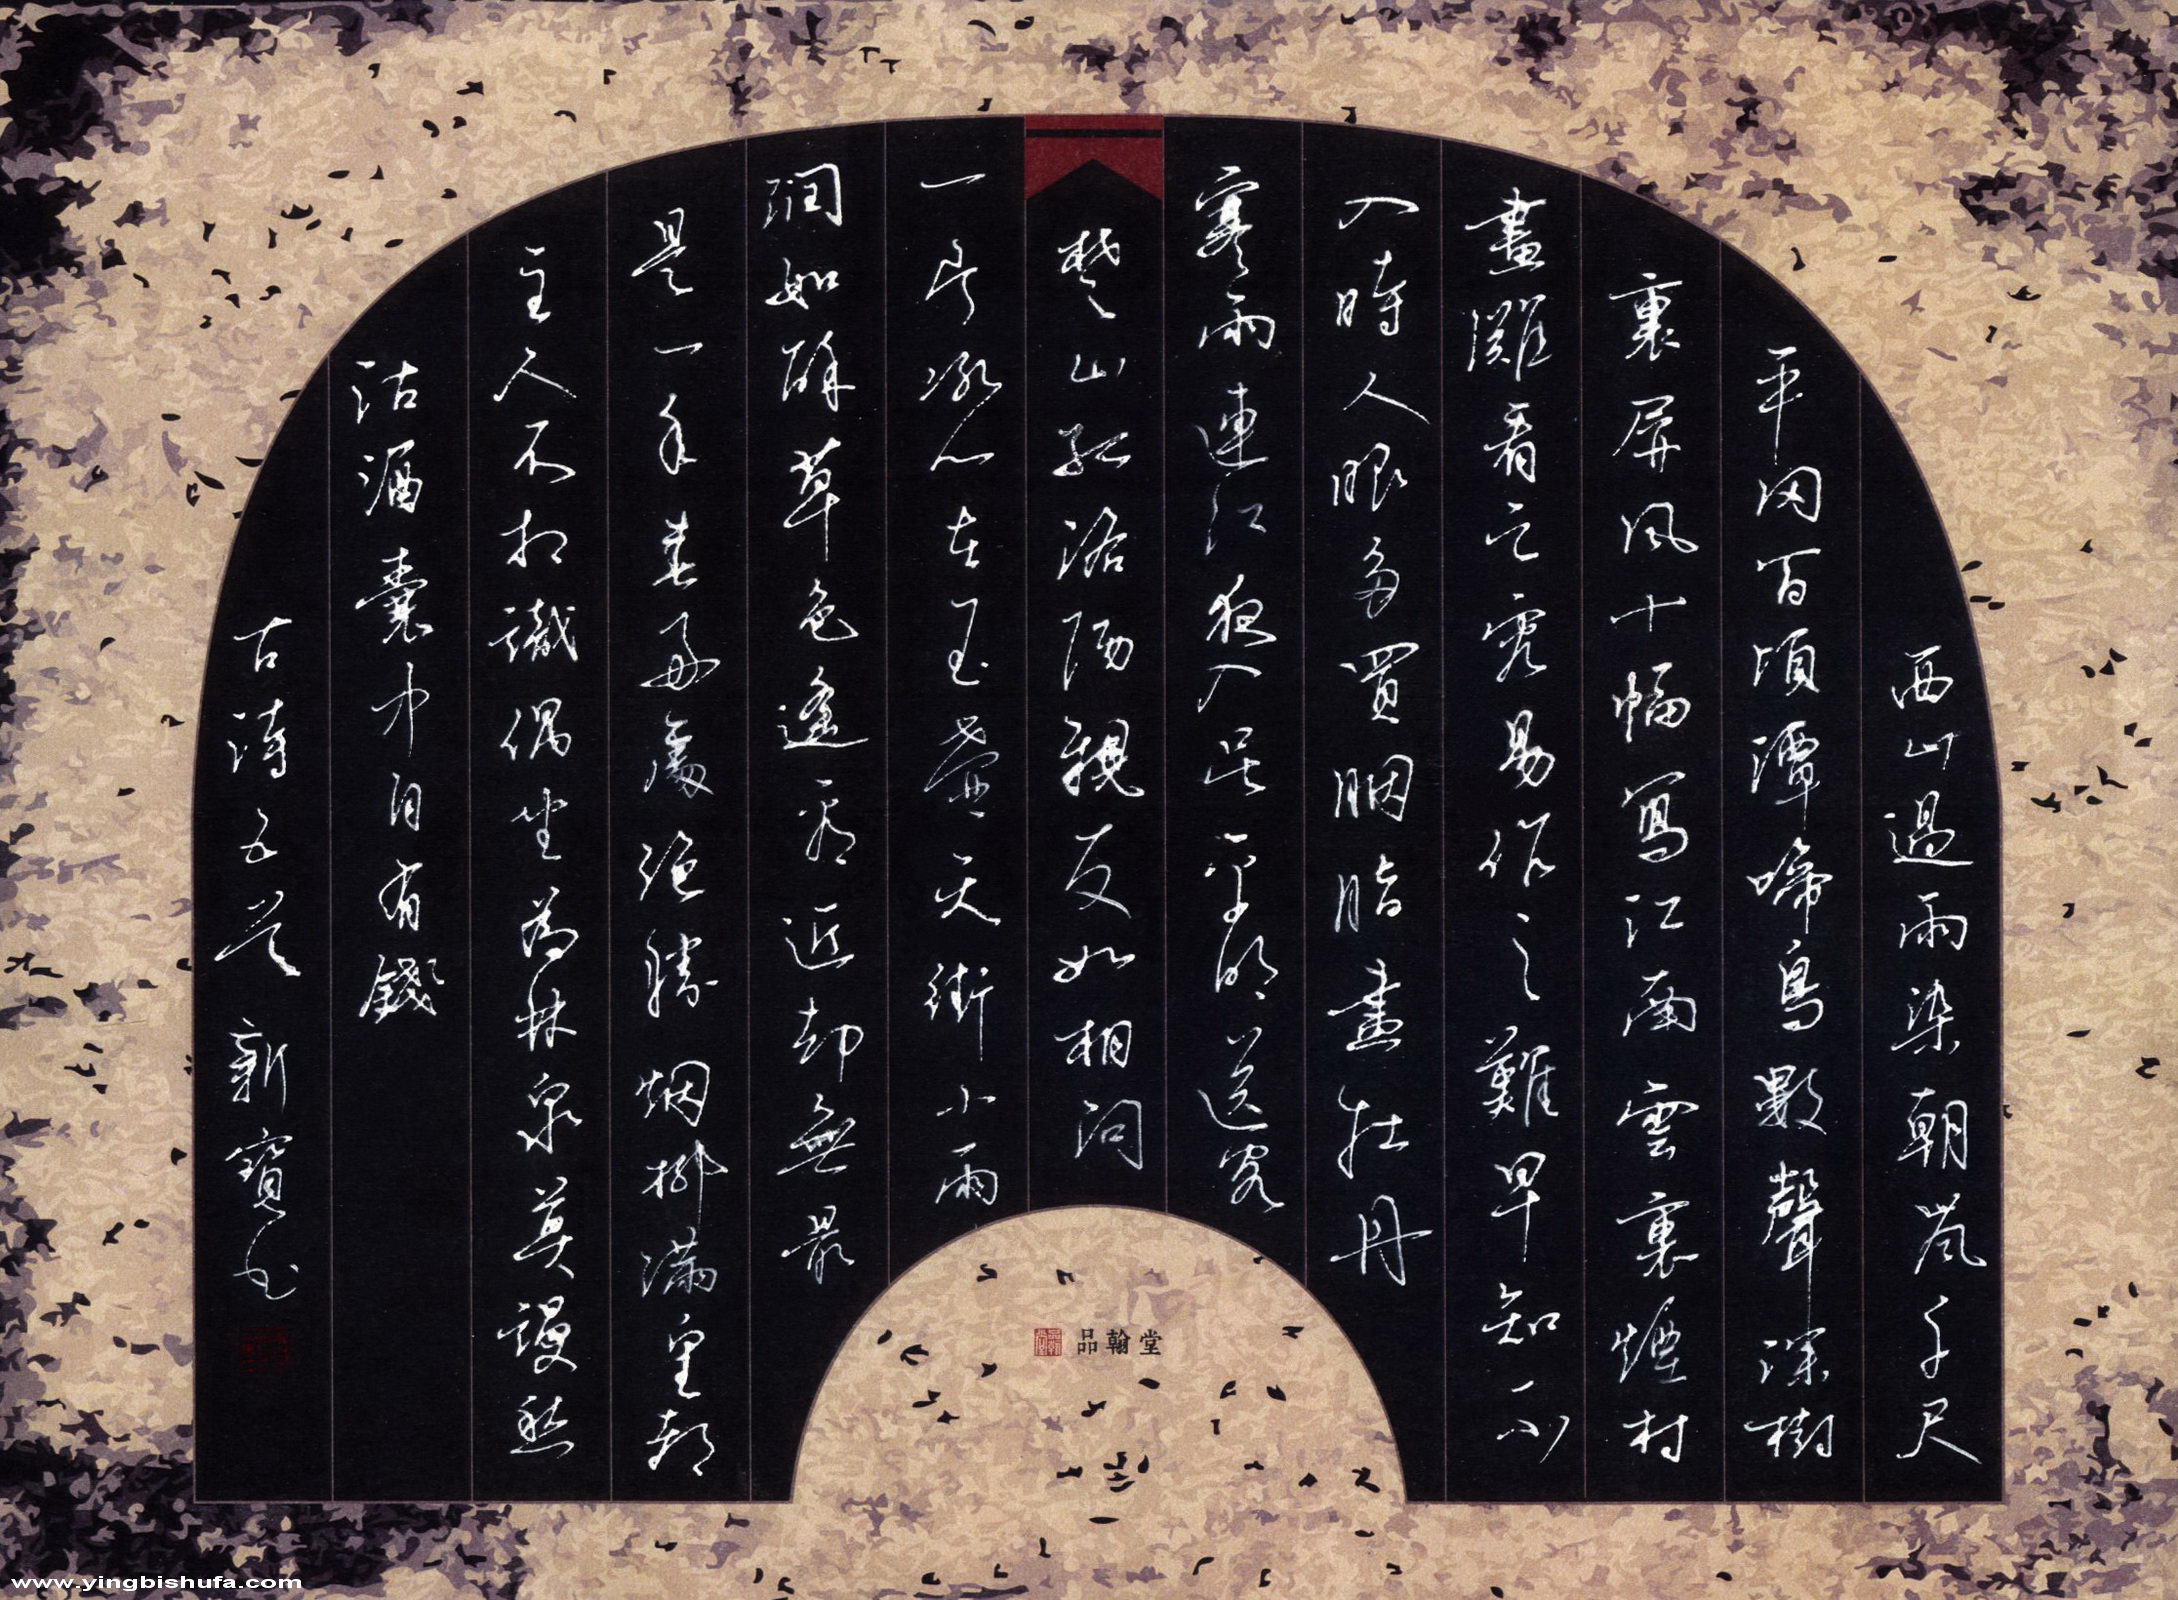 西山過雨染朝嵐千尺
平冈百頃潭啼鳥數聲深樹
裏屏風十幅寫江南雲裏煙村
畫灘看之容易作之難早知不
入時人眼多買胭脂畫牡丹
寒雨連江夜入吳平明送客
楚山孤洛陽親友如相問
一片冰心在玉壺天街小雨
潤如酥草色遙看近却無最
是一年春好處絕勝烟柳滿皇都
主人不相識偶坐為林泉莫謾愁
沽酒囊中自有錢
古詩五首 新寶书
品翰堂
www.yingbishufa.com